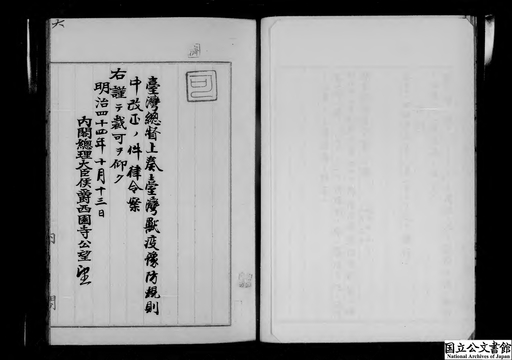 臺灣總督上奏臺灣獸疫豫防規則
中改正ノ件律令案
右謹テ裁可ヲ仰ク
明治四十四年十月十三日
內閣總理大臣侯爵西園寺公望
內閣
六
国立公文書館
National Archives of Japan